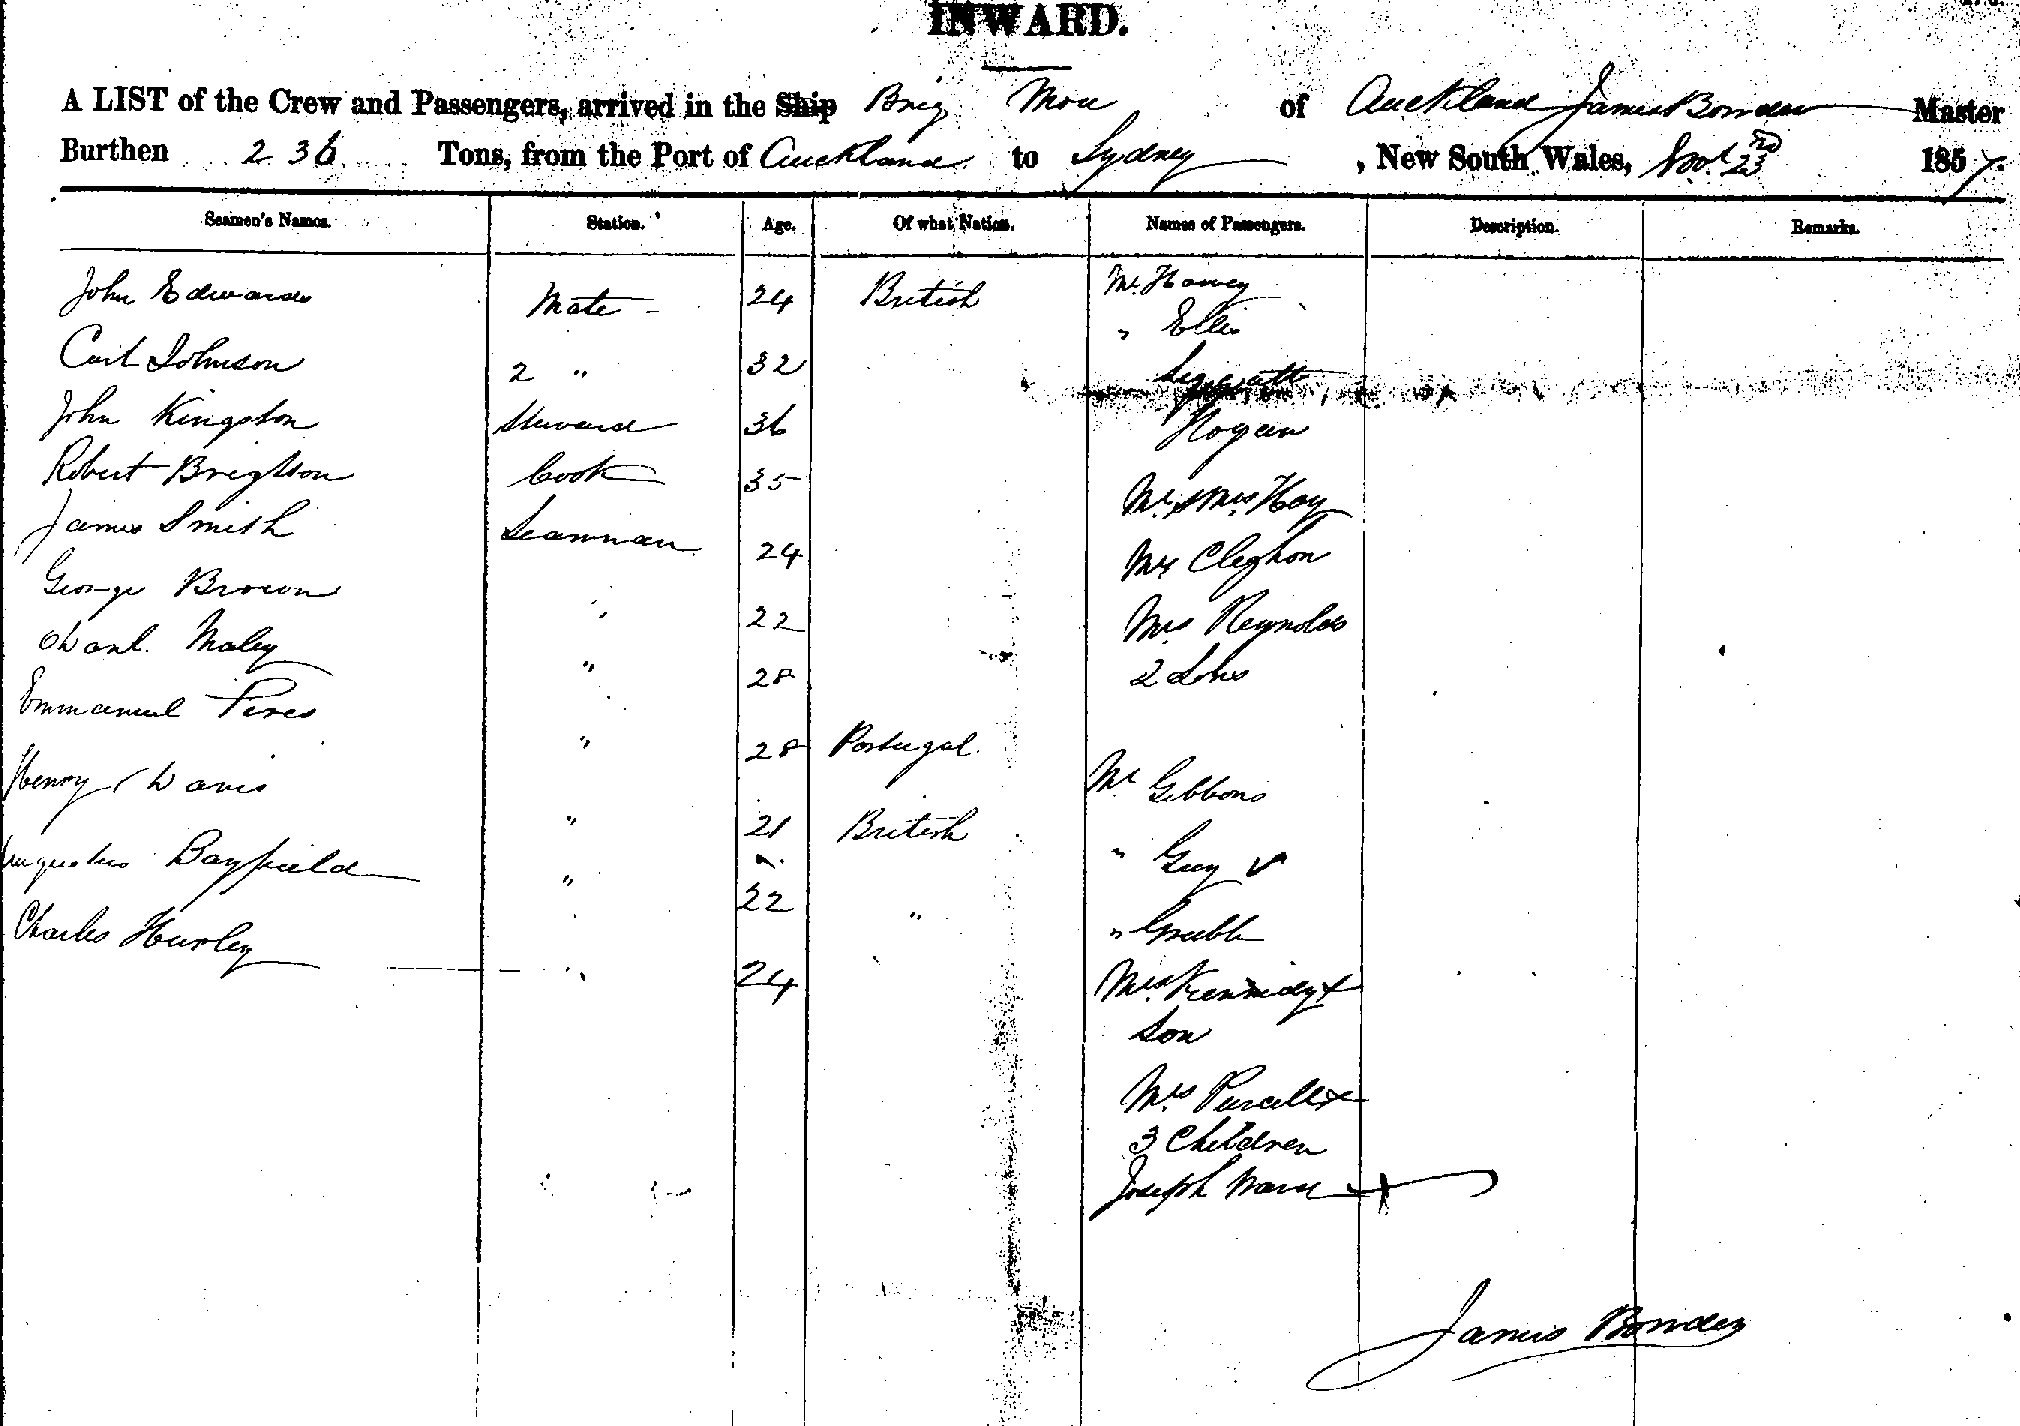 INWARD.
A LIST of the Crew and Passengers, arrived in the Ship Brig Moa of Auckland James Bowden Master
Burthen 236 Tons, from the Port of Auckland to Sydney, New South Wales, Nov. 23rd 1857.
Seamen's Names. Station. Age. Of what Nation. Names of Passengers. Description. Remarks.
John Edwards Mate 24 British Mr. Harvey
" Ellis
Carl Johnson 2 " 32
John Kingston Steward 36 Hogan
Robert Brightson Cook 35 Mr. & Mrs Hay
James Smith Seaman 24 Mr Cleghon
George Brown " 22 Mrs Reynolds
Danl. Maley " 28 2 Sons
Emmanuel Peres " 28 Portugal
Mr Gibbons
Henry Davis " 21 British " Guy
Augustus Bayfield " 22 " " Grubb
Charles Hurley " 24 Mrs Kennedy &
Son
Mrs Purcell &
3 Children
Joseph
James Bowden